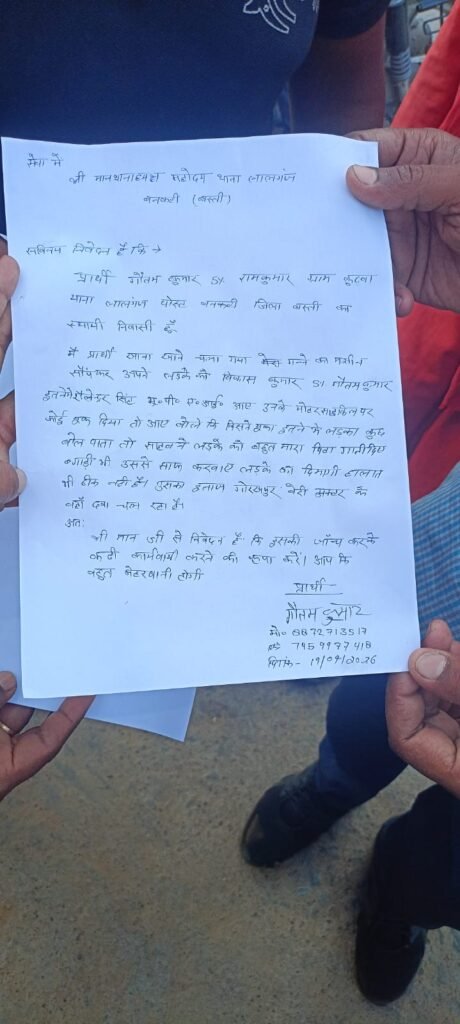 सेवा में
श्री मान थानाध्यक्ष महोदय थाना लालगंज
बनकटी (बस्ती)
सविनय निवेदन है कि →
प्रार्थी गौतम कुमार S/ रामकुमार ग्राम
थाना लालगंज पोस्ट बनकटी जिला बस्ती का
स्थायी निवासी हूँ.
मैं प्रार्थी खाना खाने चला गया गन्ने का मशीन
सौंपकर अपने लडके को विकास कुमार S/ गौतमकुमार
इतने में सिंह यू० पी० ए० आई० आए उनके मोटरसाइकिल पर
कोई थूक दिया तो आए बोले कि किसने थूका इतने में लडका कुछ
बोल पाता तो साहब ने लडके को बहुत मारा पिटा गाली दिए
भी उससे साफ करवाए लडके का दिमागी हालात
भी ठीक नही है। उसका इलाज गोरखपुर डाक्टर के
वहाँ दवा चल रहा है।
अतः
श्री मान जी से निवेदन है कि इसकी जाँच करके
कडी कार्यवाही करने की कृपा करें। आप कि
बहुत मेहरबानी होगी
प्रार्थी
गौतम कुमार
मो० 8872713517
7459977418
दिनांक - 19/04/2026